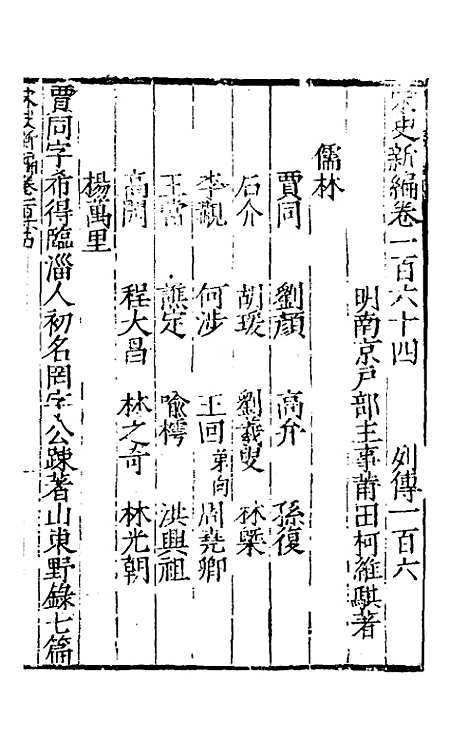 宋史新編卷一百六十四 列傳一百六
明南京戶部主事莆田柯維騏著
儒林
賈同 劉顏 高弁 孫復
石介 胡瑗 劉羲叟 林槩
李覯 何涉 王回弟向 周堯卿
王當 譙定 喻樗 洪興祖
高閌 程大昌 林之奇 林光朝
楊萬里
賈同字希得臨淄人初名罔字公踈著山東野錄七篇
宋史新編卷一百六十四